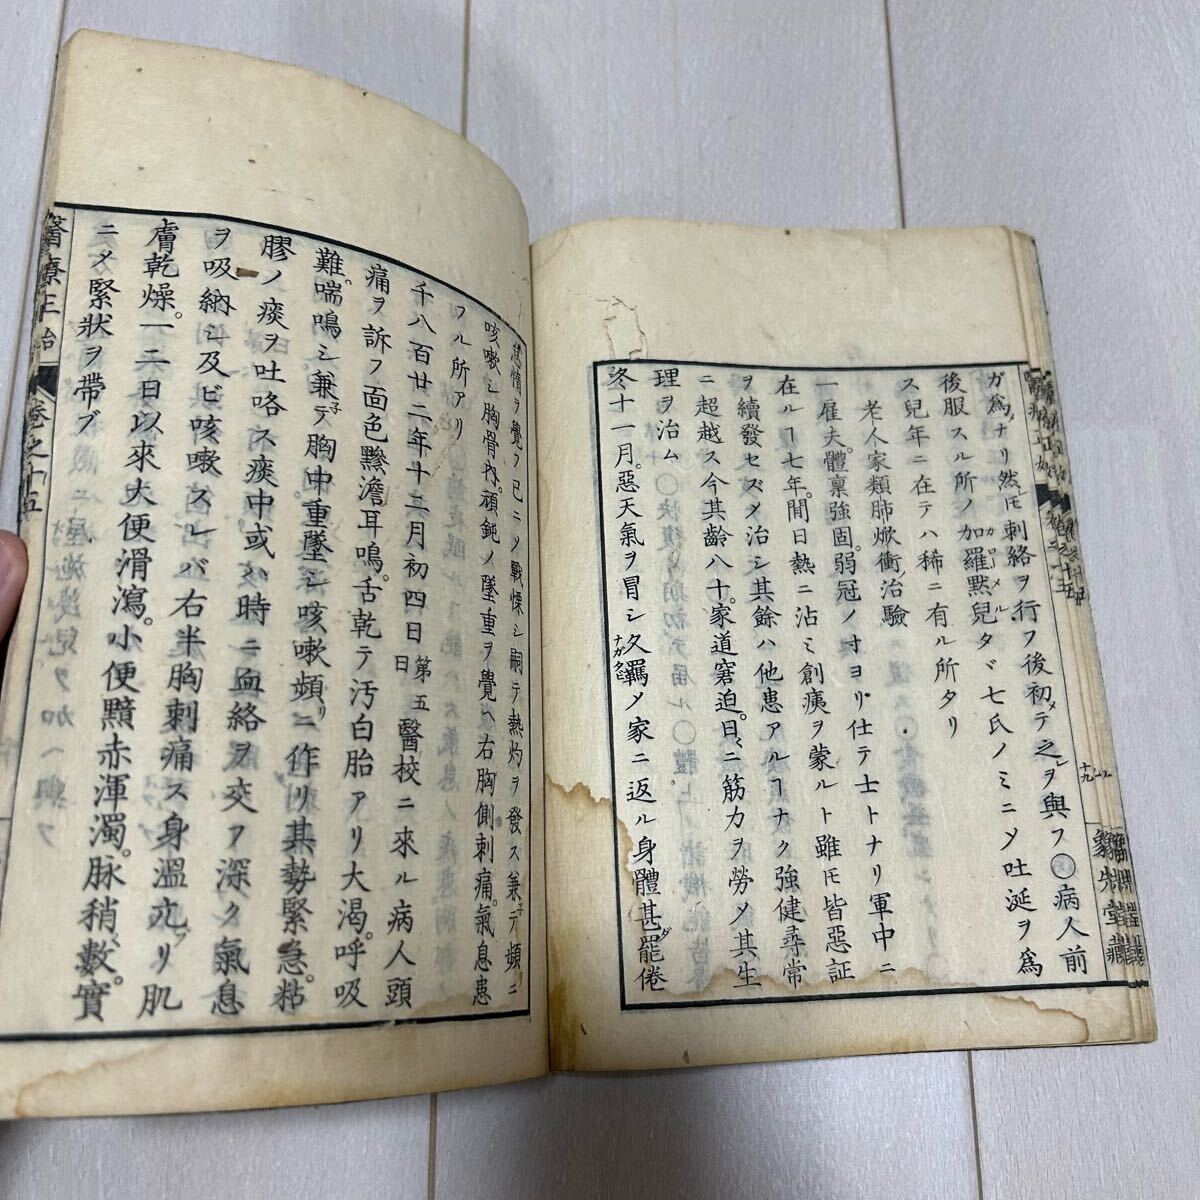 ガ為ナリ然レ𪜈刺絡ヲ行フ後初メテ之ヲ與フ〇病人前
後服スル所ノ加羅黙兒カローメルタゞ七氏ノミニ〆吐涎ヲ為
ス兒年ニ在テハ稀ニ有ル所タリ
老人家類肺焮衝治驗
一雇夫體禀強固弱冠ノ才ヨリ仕テ士トナリ軍中ニ
在ルヿ七年間日熱ニ沾ミ創痍ヲ蒙ルト雖𪜈皆惡証
ヲ續發セズ〆治シ其餘ハ他患アルヿナク強健尋常
ニ超越ス今其齢八十家道窘迫日ニ筋力ヲ勞〆其生
理ヲ治ム
冬十一月惡天氣ヲ冒シ久羈ノ家ニ返ル身體甚ダ罷倦
怠惰ヲ覺フ已ニ〆戰慄シ嗣テ熱灼ヲ發ス兼テ頻リニ
咳嗽シ胸骨内頑鈍ノ墜重ヲ覺ヘ右胸側刺痛氣息患
フル所アリ
千八百廿二年十二月初四日第五日醫校ニ來ル病人頭
痛ヲ訴フ面色黲澹耳鳴舌乾テ汚白胎アリ大渇呼吸
難喘鳴シ兼テ胸中重墜シ咳嗽頻リニ作リ其勢緊急粘
膠ノ痰ヲ吐咯ス痰中或ハ時ニ血絡ヲ交ア深ク氣息
ヲ吸納シ及ビ咳嗽スレバ右半胸刺痛ス身温亢リ肌
膚乾燥一二日以來大便滑瀉小便黰赤渾濁脉稍數實
ニ〆緊状ヲ帶ブ
醫療正始
巻之十五
十九
象先堂藏